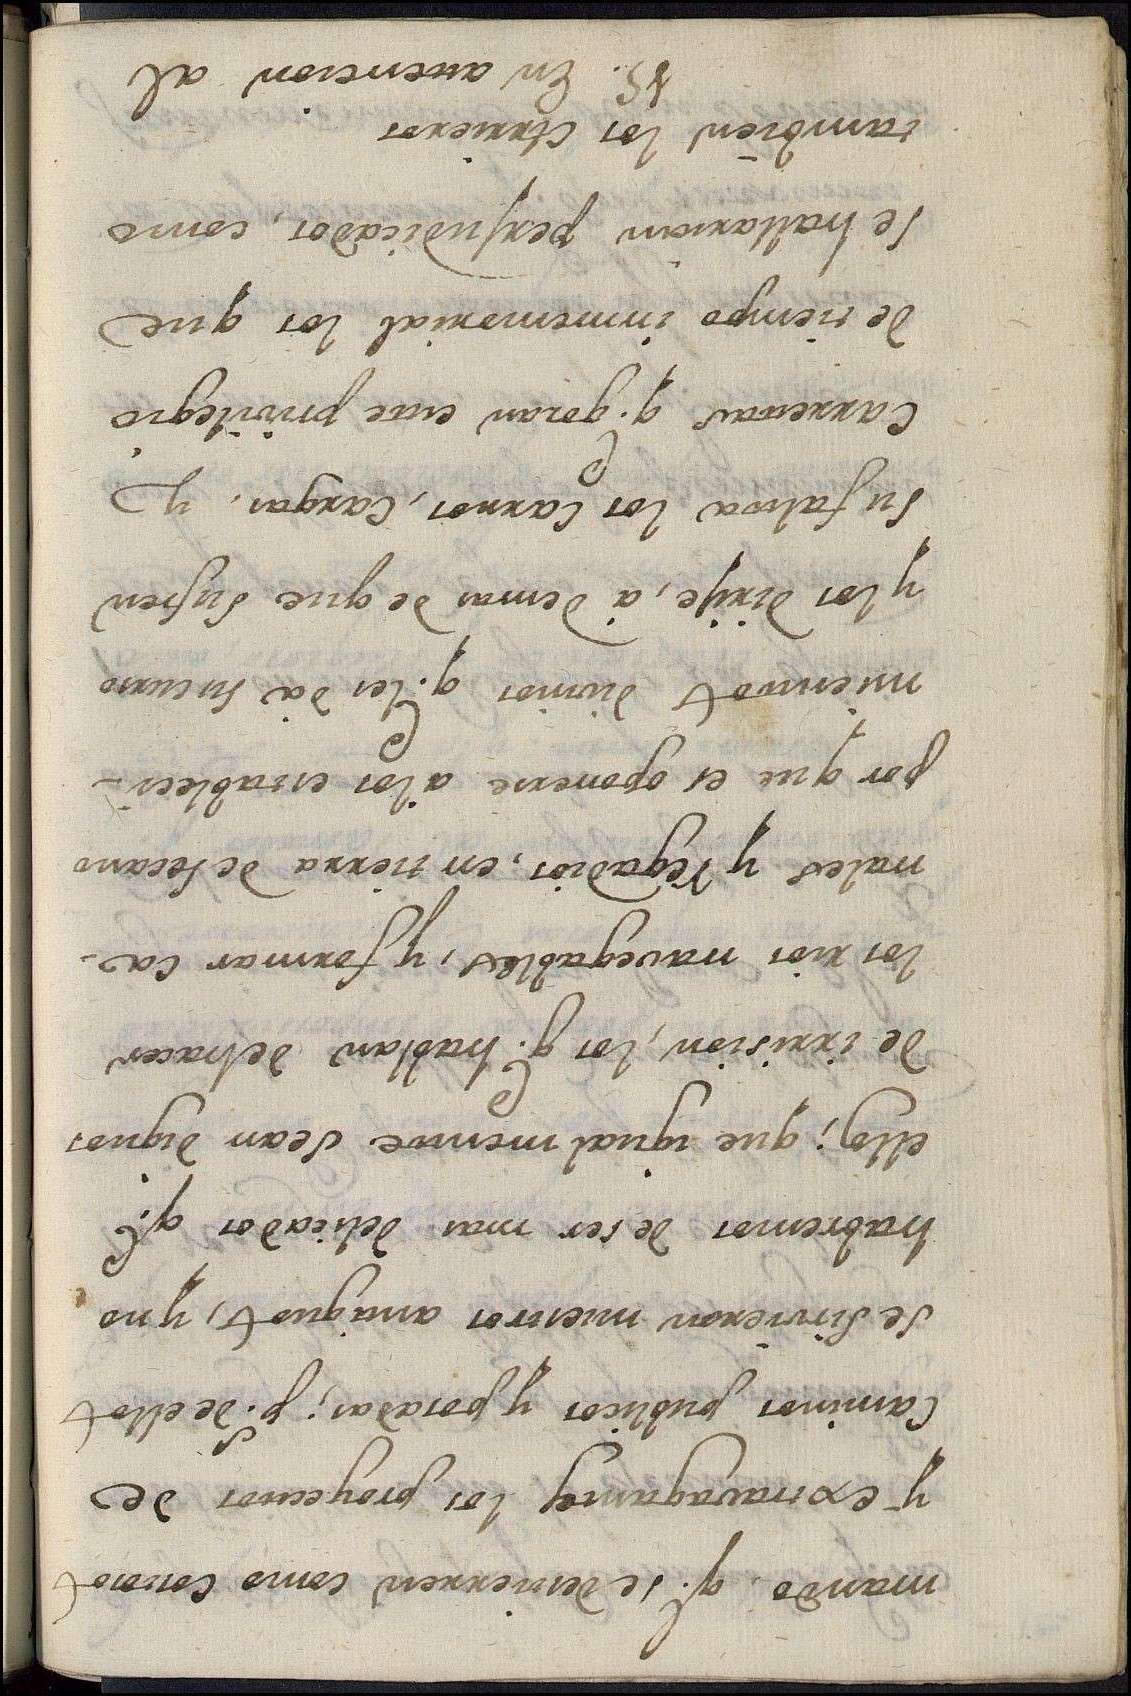 mando, q.e se destierren como costosos
y extravagantes los proyectos de
Caminos publicos y posadas; p.s de ellos
se sirvieron nuestros antiguos, y no
habremos de ser mas delicados q.e
ellos; que igualmente sean dignos
de irrision, los q.e hablan de hacer
los rios navegables, y formar ca-
nales y regadios, en tierra de secano
por que es oponerse a los estableci-
mientos divinos q.e les da su curso
y los dirije, a demas de que sufren
su falta los Carros, Cargas, y
Carretas q.e gozan este privilegio
de tiempo inmemorial los que
se hallarian perjudicados, como
tambien los Arrieros
15. En atencion al